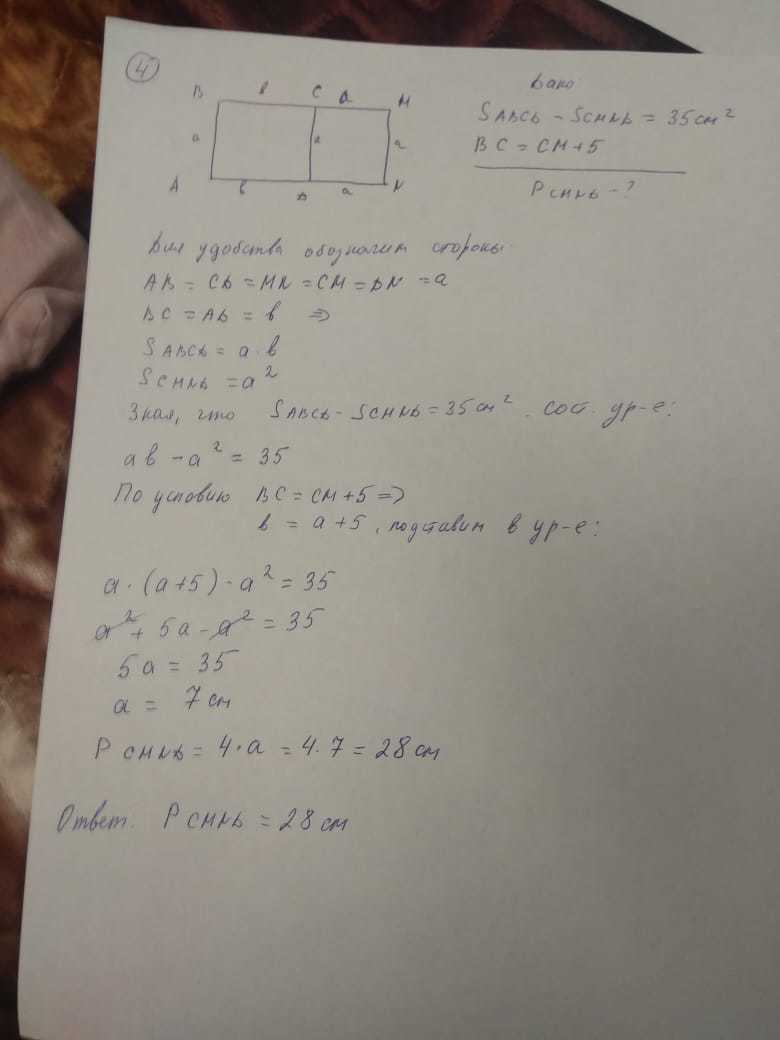 4
B в C a M
a a a
A в D a N
Дано:
SABCD - SCMND = 35 см²
BC = CM + 5
PCMND - ?
Для удобства обозначим стороны:
AB = CD = MN = CM = DN = a
BC = AD = в ⇒
SABCD = a · в
SCMND = a²
Зная, что SABCD - SCMND = 35 см², сост. ур-е:
aв - a² = 35
По условию BC = CM + 5 ⇒
в = a + 5, подставим в ур-е:
a · (a + 5) - a² = 35
a² + 5a - a² = 35
5a = 35
a = 7 см
PCMND = 4 · a = 4 · 7 = 28 см
Ответ. PCMND = 28 см